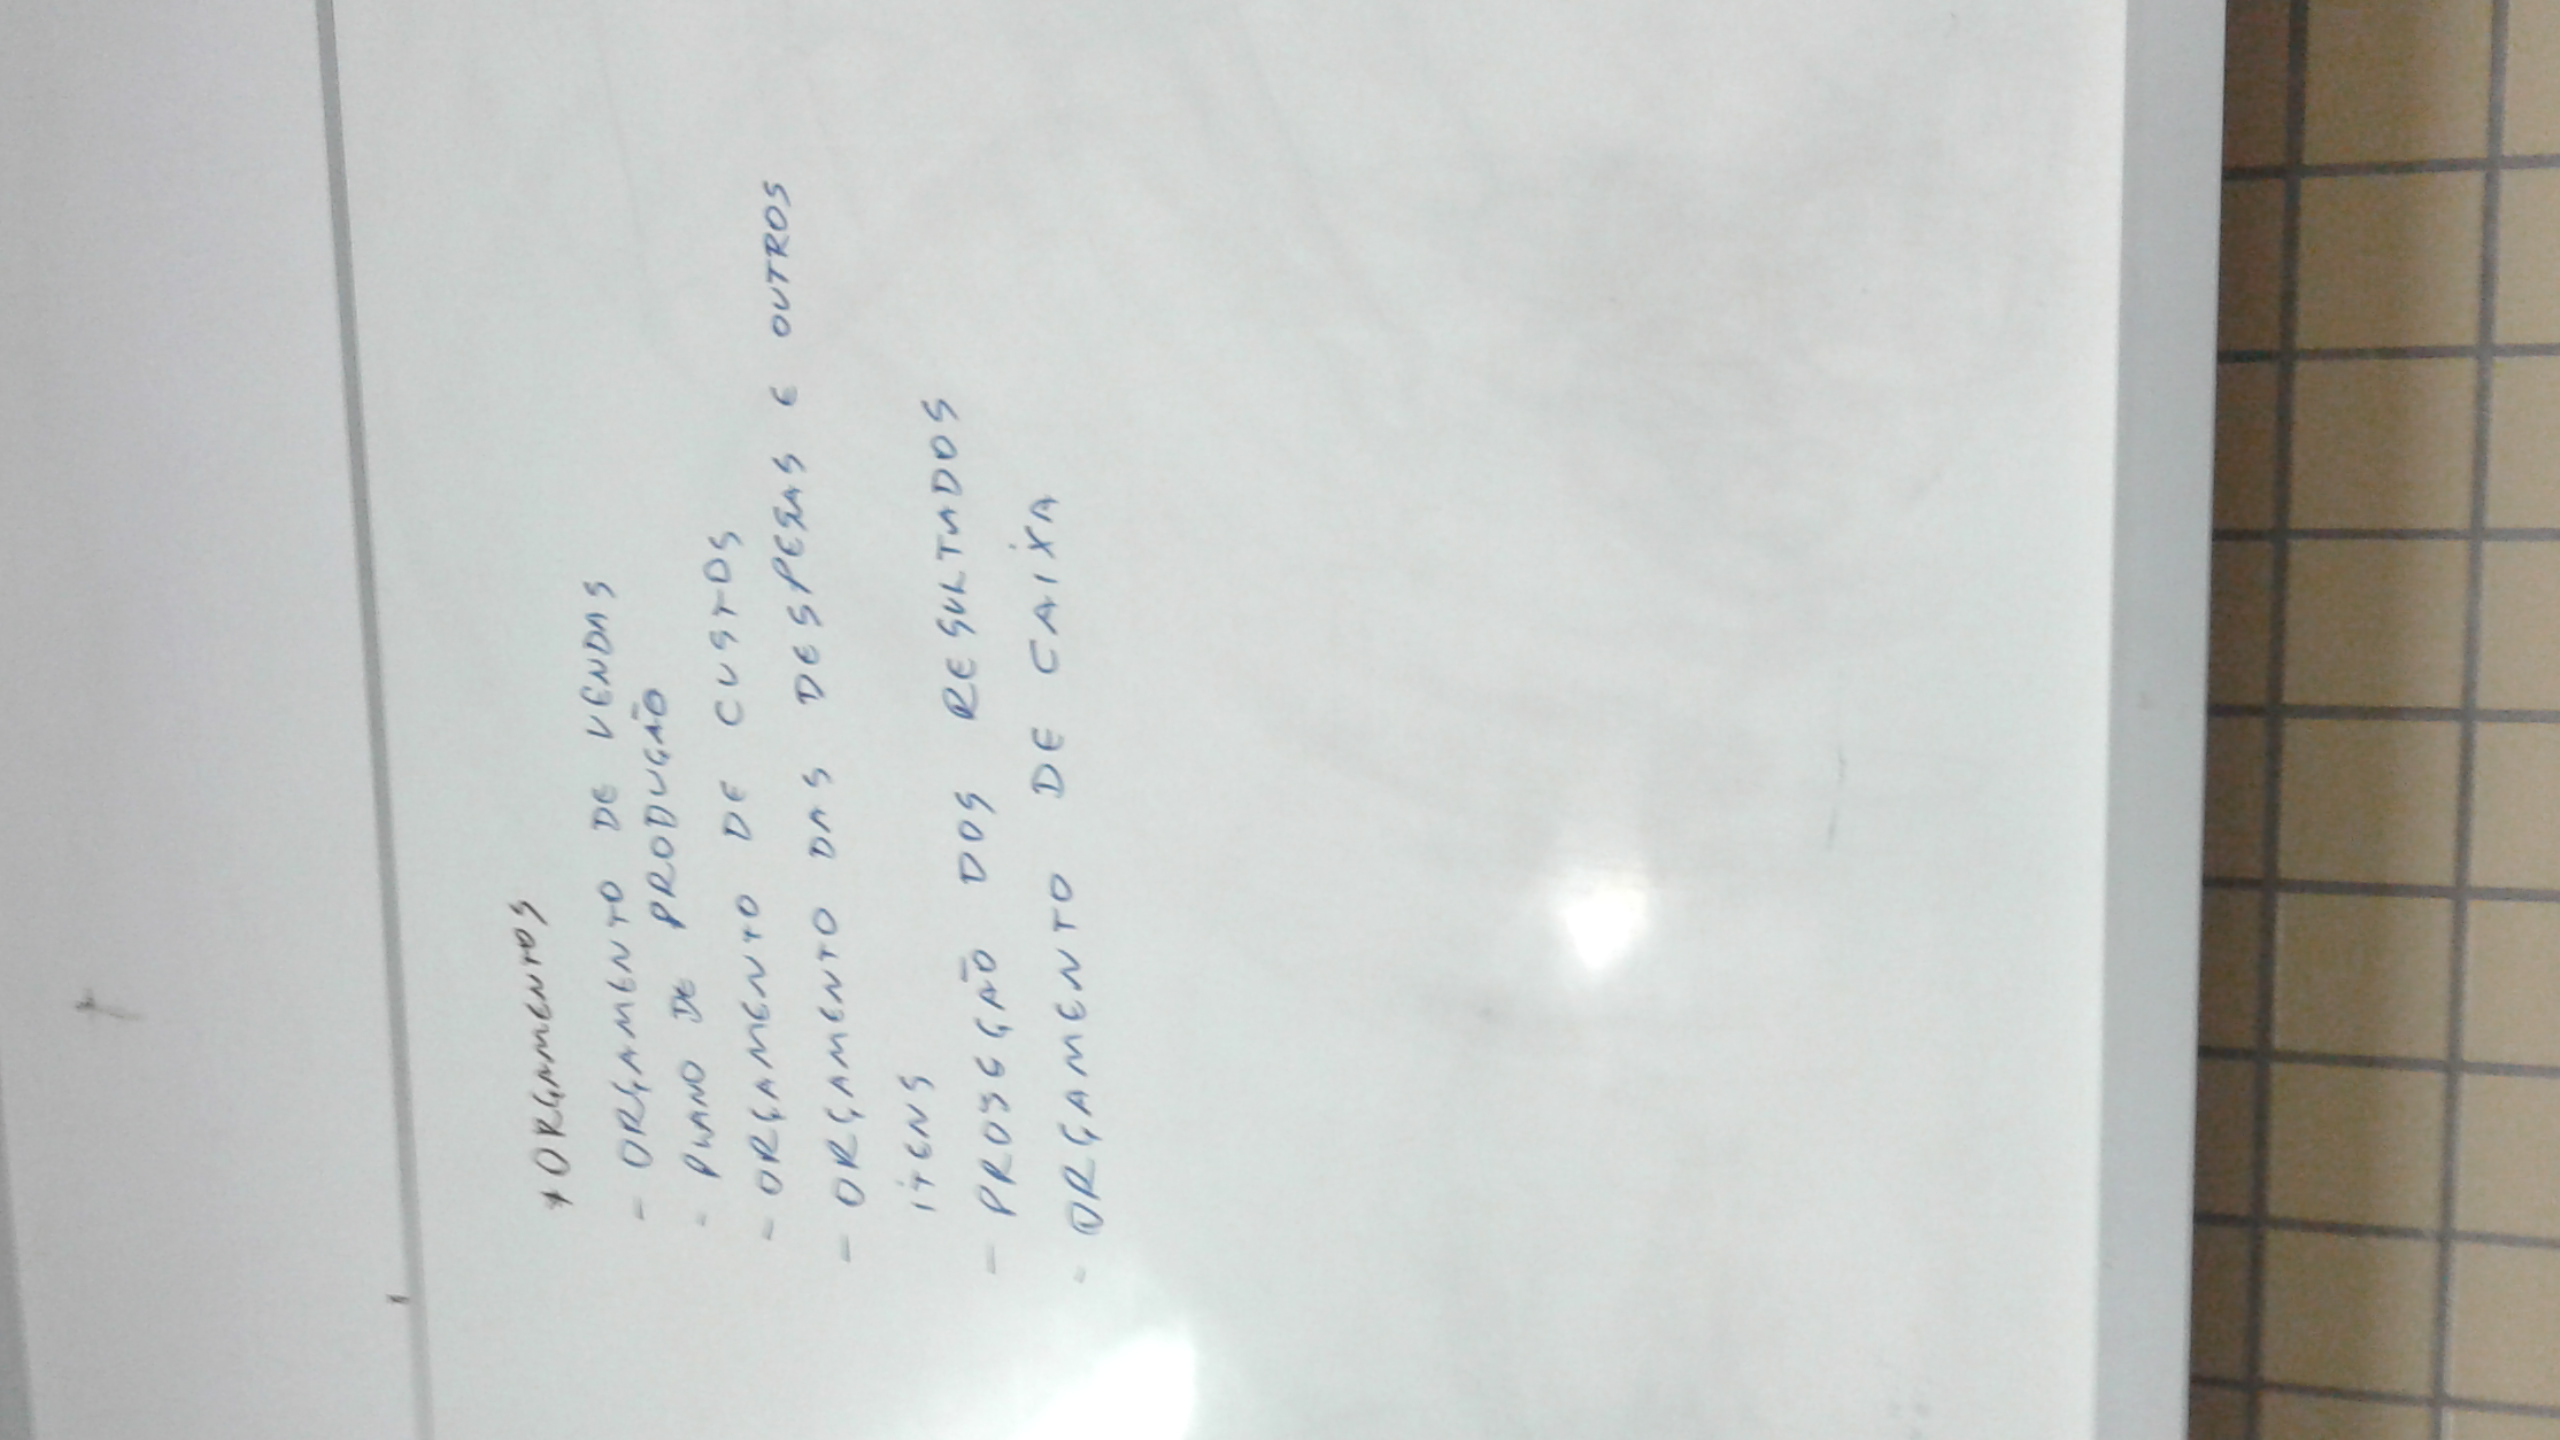 * ORÇAMENTOS
- ORÇAMENTO DE VENDAS
- PLANO DE PRODUÇÃO
- ORÇAMENTO DE CUSTOS
- ORÇAMENTO DAS DESPESAS E OUTROS
ITENS
- PROJEÇÃO DOS RESULTADOS
- ORÇAMENTO DE CAIXA